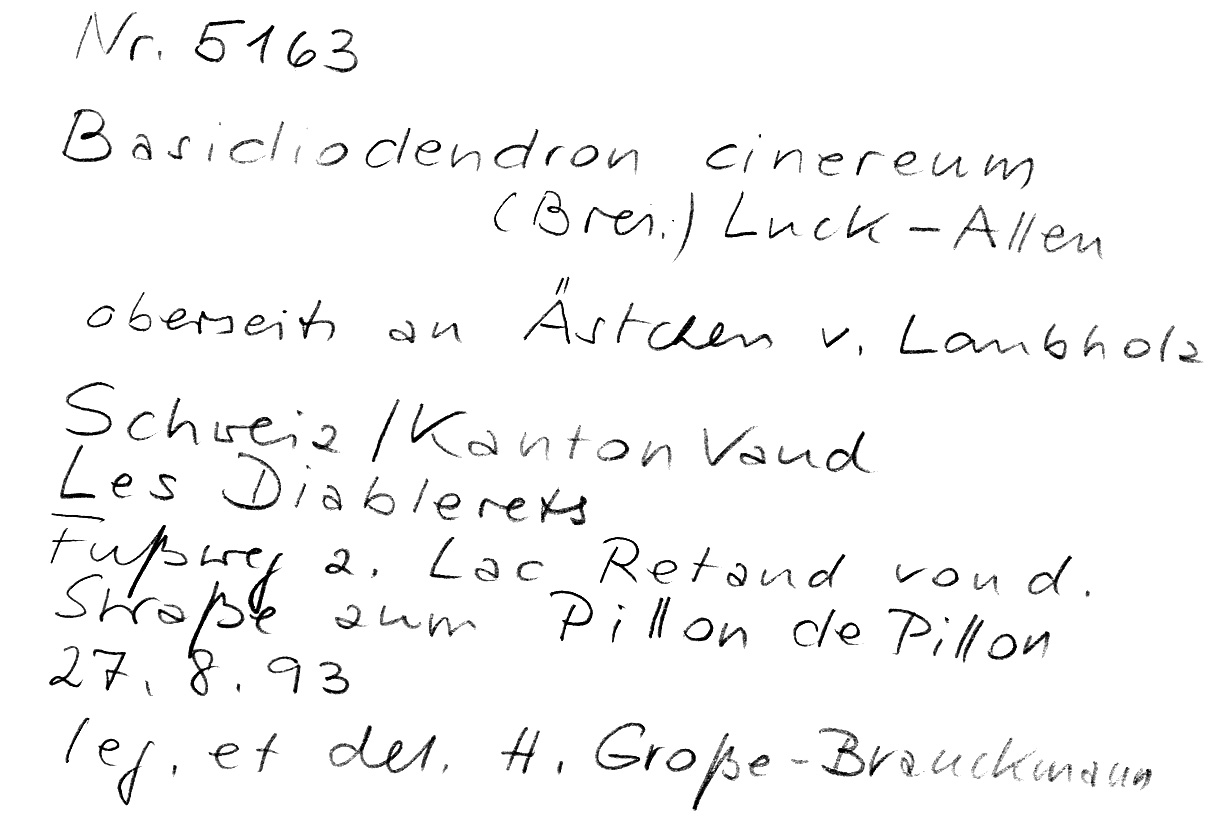 Nr. 5163
Basidiodendron cinereum
(Bres.) Luck-Allen
oberseits an Ästchen v. Laubholz
Schweiz / Kanton Vaud
Les Diablerets
Fußweg z. Lac Retaud von d.
Straße zum Pillon de Pillon
27. 8. 93
leg. et det. H. Große-Brauckmann